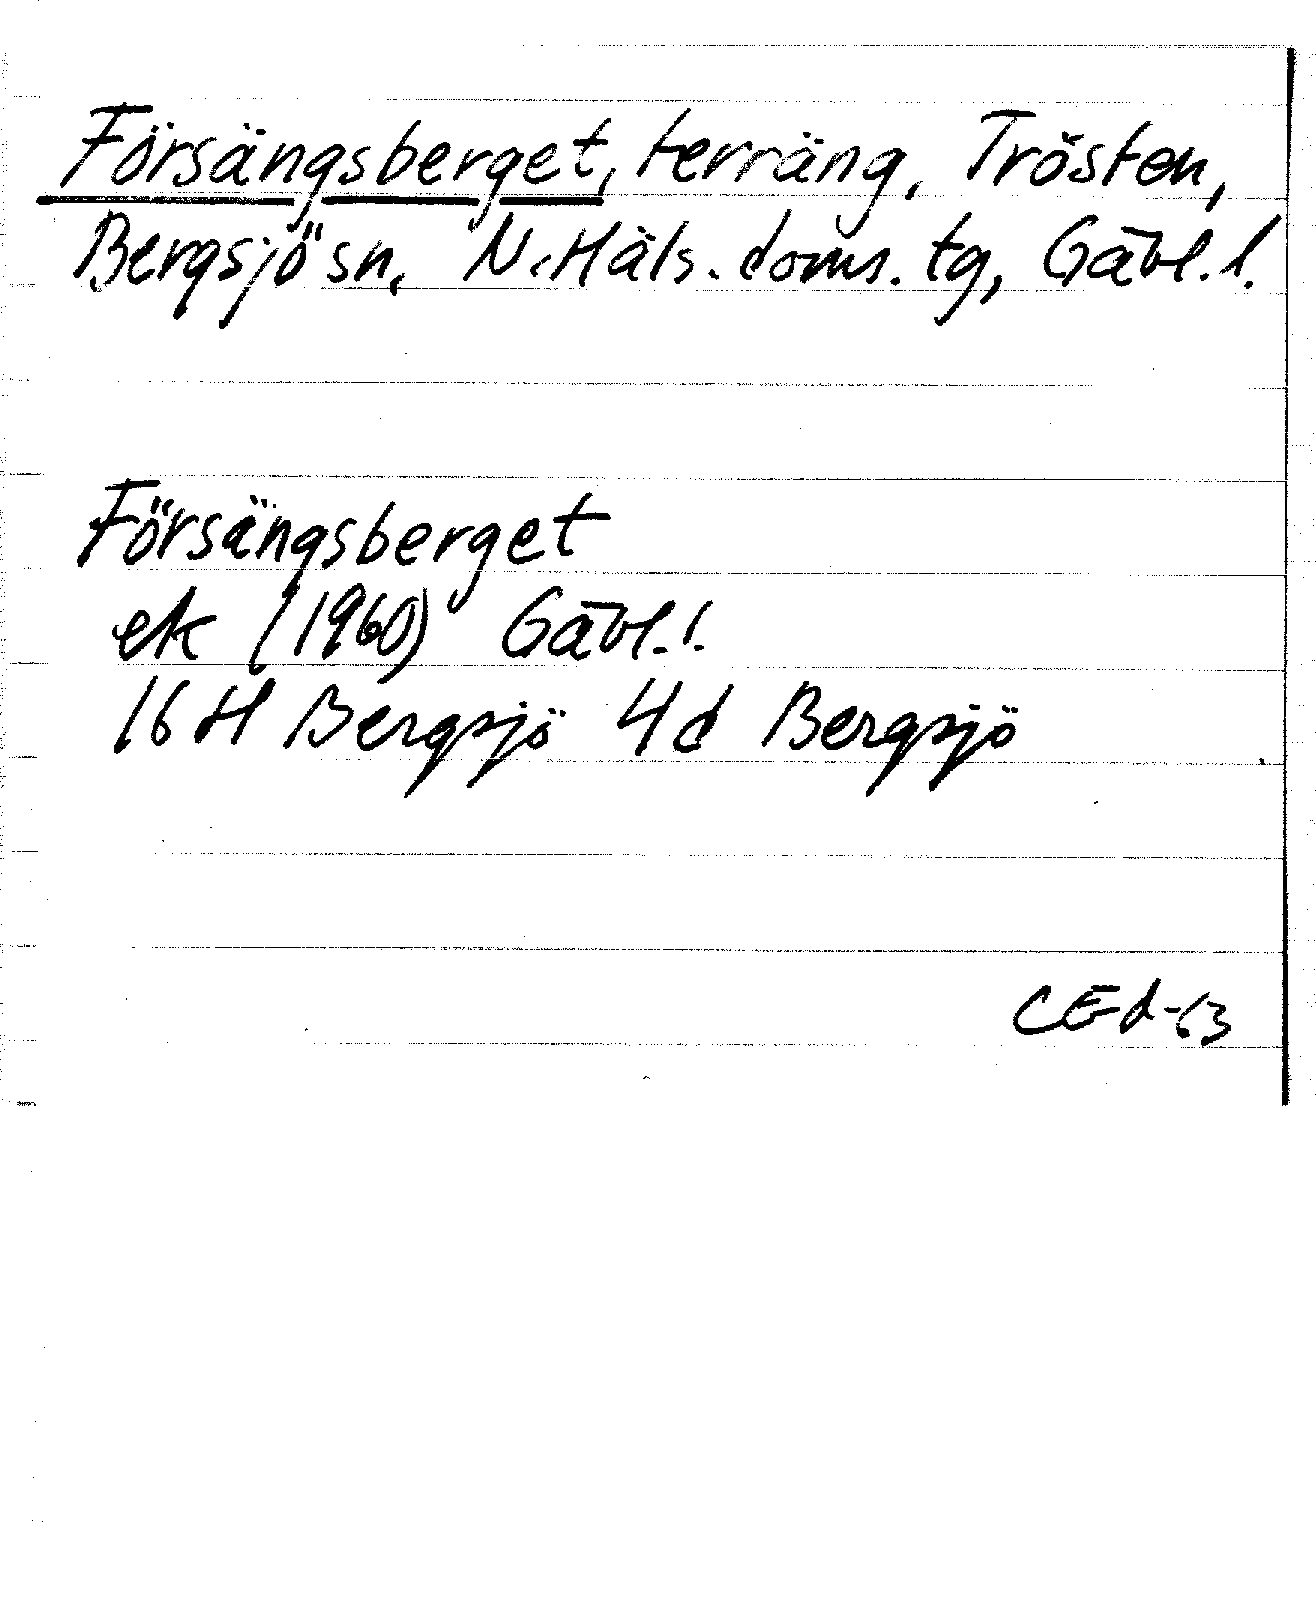 Försängsberget, terräng, Trösten,
Bergsjö sn, N. Häls. doms. tg, Gävl. l.
Försängsberget
ek (1960) Gävl. l.
16 H Bergsjö 4d Bergsjö
CEd-63